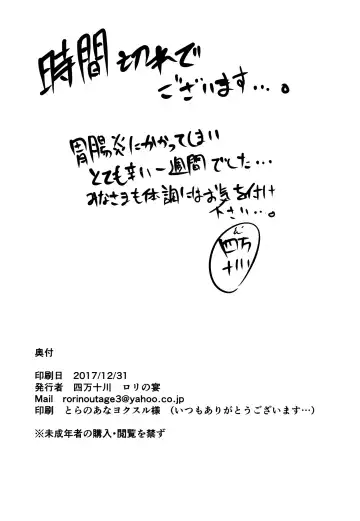 時間切れで
ございます…。
胃腸炎にかかってしまい
とても辛い一週間でした…
みなさまも体調にはお気を付け
下さい…。
四万
十川
奥付
印刷日　2017/12/31
発行者　四万十川　ロリの宴
Mail　rorinoutage3@yahoo.co.jp
印刷　とらのあなヨクスル様　(いつもありがとうございます…)
※未成年者の購入・閲覧を禁ず